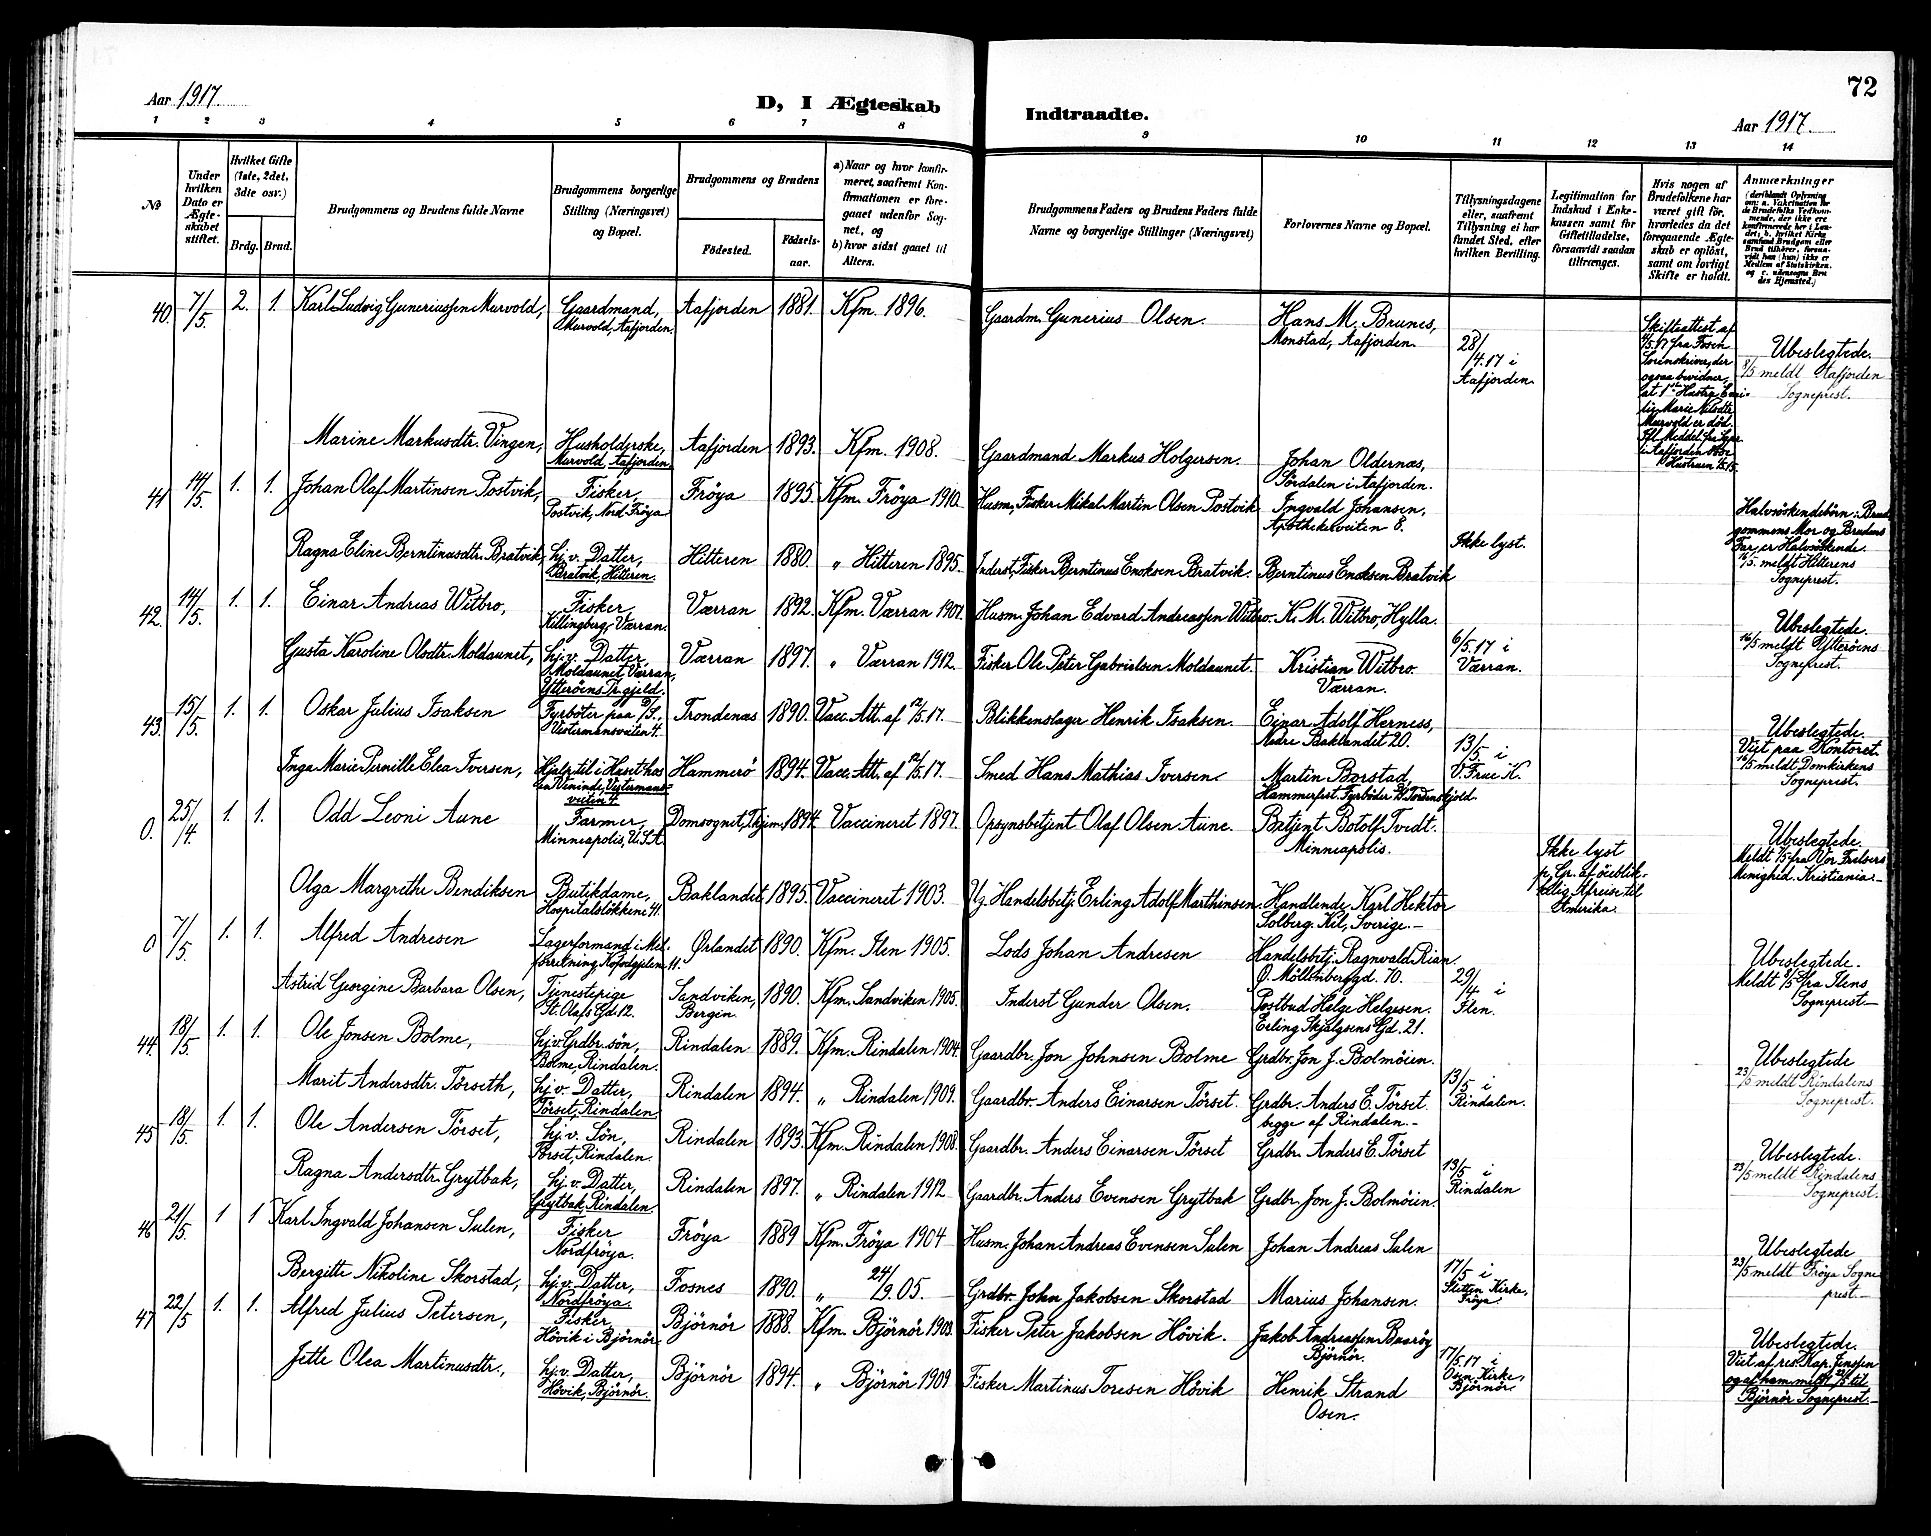 72
Aar 1917.
D, I Ægteskab
Indtraadte.
Aar 1917.
1 2 3 4 5 6 7 8 9 10 11 12 13 14
No
Under hvilken Dato er Ægteskabet stiftet.
Hvilket Gifte (1ste, 2det, 3die osv.)
Brdg. Brud.
Brudgommens og Brudens fulde Navne
Brudgommens borgerlige Stilling (Næringsvei) og Bopæl.
Brudgommens og Brudens
Fødested. Fødselsaar.
a) Naar og hvor konfirmeret, saafremt Konfirmationen er foregaaet udenfor Sognet, og
b) hvor sidst gaaet til Alters.
Brudgommens Faders og Brudens Faders fulde Navne og borgerlige Stillinger (Næringsvei)
Forlovernes Navne og Bopæl.
Tillysningsdagene eller, saafremt Tillysning ei har fundet Sted, efter hvilken Bevilling.
Legitimation for Indskud i Enkekassen samt for Giftetilladelse, forsaavidt saadan tiltrænges.
Hvis nogen af Brudefolkene har været gift før, hvorledes da det foregaaende Ægteskab er opløst, samt om lovligt Skifte er holdt.
Anmærkninger
40. 7/5. 2. 1. Karl Ludvig Guneriussen Murvold, Gaardmand, Murvold, Aafjorden. Aafjorden 1881. Kfm. 1896. Gaardm. Gunerius Olsen. Hans M. Brunes, Monstad, Aafjorden. 28/4.17 i Aafjorden. Skifteattest af
Ubeslegtede. 8/5 meldt Aafjorden Sogneprest.
Marine Markusdtr. Vingen, Husholderske, Murvold, Aafjorden. Aafjorden 1893. Kfm. 1908. Gaardmand Markus Holgersen. Johan Oldernæs, Sördalen i Aafjorden.
41 14/5. 1. 1. Johan Olaf Martinsen Postvik, Fisker, Postvik, Nord Fröya Fröya 1895. Kfm. Fröya 1910. Husm., Fisker Mikal Martin Olsen Postvik Ingvald Johansen, Apothekerveiten 8. Ikke lyst.
Halvsöskendebörn: Brudgommens Mor og Brudens Far er Halvsöskende. 16/5. meldt Hitterens Sogneprest.
Ragna Eline Berntinusdtr. Bratvik, hj. v. Datter, Bratvik, Hitteren. Hitteren 1880. " Hitteren 1895. Inderst, Fisker Berntinus Enoksen Bratvik. Berntinus Enoksen Bratvik
42. 14/5. 1. 1. Einar Andreas Witbro, Fisker, Killingberg, Værran. Værran 1892. Kfm. Værran 1907. Husm. Johan Edvard Andreassen Witbro. K. M. Witbro, Hylla. 6/5.17 i Værran.
Ubeslegtede. 16/5 meldt Ytteröens Sogneprest.
Gusta Karoline Olsdtr. Moldaunet, hj. v. Datter, Moldaunet Værran, Ytteröens Pr.gjeld. Værran 1897. " Værran 1912. Fisker Ole Peter Gabrielsen Moldaunet. Kristian Witbro. Værran.
43. 15/5. 1. 1. Oskar Julius Isaksen Fyrböter paa D/S., Vestermannsveiten 4. Trondenæs 1890. Vacc. Att. af 12/5.17. Blikkenslager Henrik Isaksen. Einar Adolf Herness, Nedre Baklandet 20. 13/5 i V. Frue K.
Ubeslegtede. Viet paa Kontoret. 16/5 meldt Domkirkens Sogneprest.
Inga Marie Pernille Elea Iversen, Hjelp til i Huset hos en Veninde, Vestermansveiten 4. Hammerö 1894. Vacc. Att. af 12/5.17. Smed Hans Mathias Iversen Martin Borstad, Hammerfest. Fyrböder D/S Tordenskjold.
0. 25/4. 1. 1. Odd Leoni Aune Farmer, Minneapolis, U.S.A. Domsognet, Tkjem. 1894. Vaccineret 1897. Opsynsbetjent Olaf Olsen Aune. Betjent Botolf Tvedt. Minneapolis. Ikke lyst p. Gr. af öieblikkelig Afreise til Amerika.
Ubeslegtede. Meldt 1/5 fra Vor Frelsers Menighed. Kristiania.-
Olga Margrethe Bendiksen Butikdame, Hospitalslökkene 41. Baklandet 1895. Vaccineret 1903. Ug. Handelsbetj. Erling Adolf Marthinsen. Handlende Karl Hektor Solberg. Kil, Sverige.-
0 7/5. 1. 1. Alfred Andresen Lagerformand i Mel-forretning, Kofodgjelen 11. Ørlandet 1890. Kfm. Ilen 1905. Lods Johan Andresen Handelsbetj. Ragnvald Rian Ø. Möllenberggd. 70. 29/4 i Ilen.
Ubeslegtede. Meldt 8/5 fra Ilens Sogneprest.-
Astrid Georgine Barbara Olsen, Tjenestepige St. Olafs Gd. 12. Sandviken, Bergen. 1890. Kfm. Sandviken 1905. Inderst Gunder Olsen. Postbud Helge Helgesen. Erling Skjalgsens Gd. 21.
44. 18/5. 1. 1. Ole Jonsen Bolme, hj. v. Grdbr. sön, Bolme, Rindalen. Rindalen 1889. Kfm. Rindalen 1904. Gaardbr. Jon Johnsen Bolme Grdbr. Jon J. Bolmöien. 13/5 i Rindalen.
Ubeslegtede 23/5 meldt Rindalens Sogneprest.
Marit Andersdtr. Törseth, hj. v. Datter, Törset, Rindalen Rindalen 1894. " Rindalen 1909. Gaardbr. Anders Einarsen Törset. Grdbr. Anders E. Törset begge af Rindalen.-
45 18/5. 1. 1. Ole Andersen Törset, hj. v. Sön, Törset, Rindalen. Rindalen 1893. Kfm. Rindalen 1908. Gaardbr. Anders Einarsen Törset Grdbr. Anders E. Törset 13/5 i Rindalen
Ubeslegtede. 23/5 meldt Rindalens Sogneprest.
Ragna Andersdtr. Grytbak, hj. v. Datter, Grytbak, Rindalen. Rindalen 1897. " Rindalen 1912 Gaardbr. Anders Evensen Grytbak Grdbr. Jon J. Bolmöien.
46 21/5. 1 1 Karl Ingvald Johansen Sulen, Fisker Nordfröya. Fröya 1889 Kfm. Fröya 1904 Husm. Johan Andreas Evensen Sulen Johan Andreas Sulen 17/5 i Sletten Kirke, Fröya.
Ubeslegtede 23/5 meldt Fröya Sogneprest-
Bergitte Nikoline Skorstad, hj. v. Datter, Nordfröya. Fosnes 1890. " 24/9.05. Grdbr. John Jakobsen Skorstad Marius Johansen.
47 22/5 1. 1. Alfred Julius Petersen, Fisker, Hövik i Björnör Björnör 1888. Kfm. Björnör 1903. Fisker Peter Jakobsen Hövik. Jakob Andreassen Buaröy Björnör. 17/5.17 i Osen Kirke, Björnör
Ubeslegtede. Viet af res. Kap. Jenssen og af ham meldt 22/5 til Björnör Sogneprest.-
Jette Olea Martinusdtr., hj. v. Datter, Hövik, Björnör. Björnör 1894. " Björnör 1909 Fisker Martinus Toresen Hövik Henrik Strand Osen.